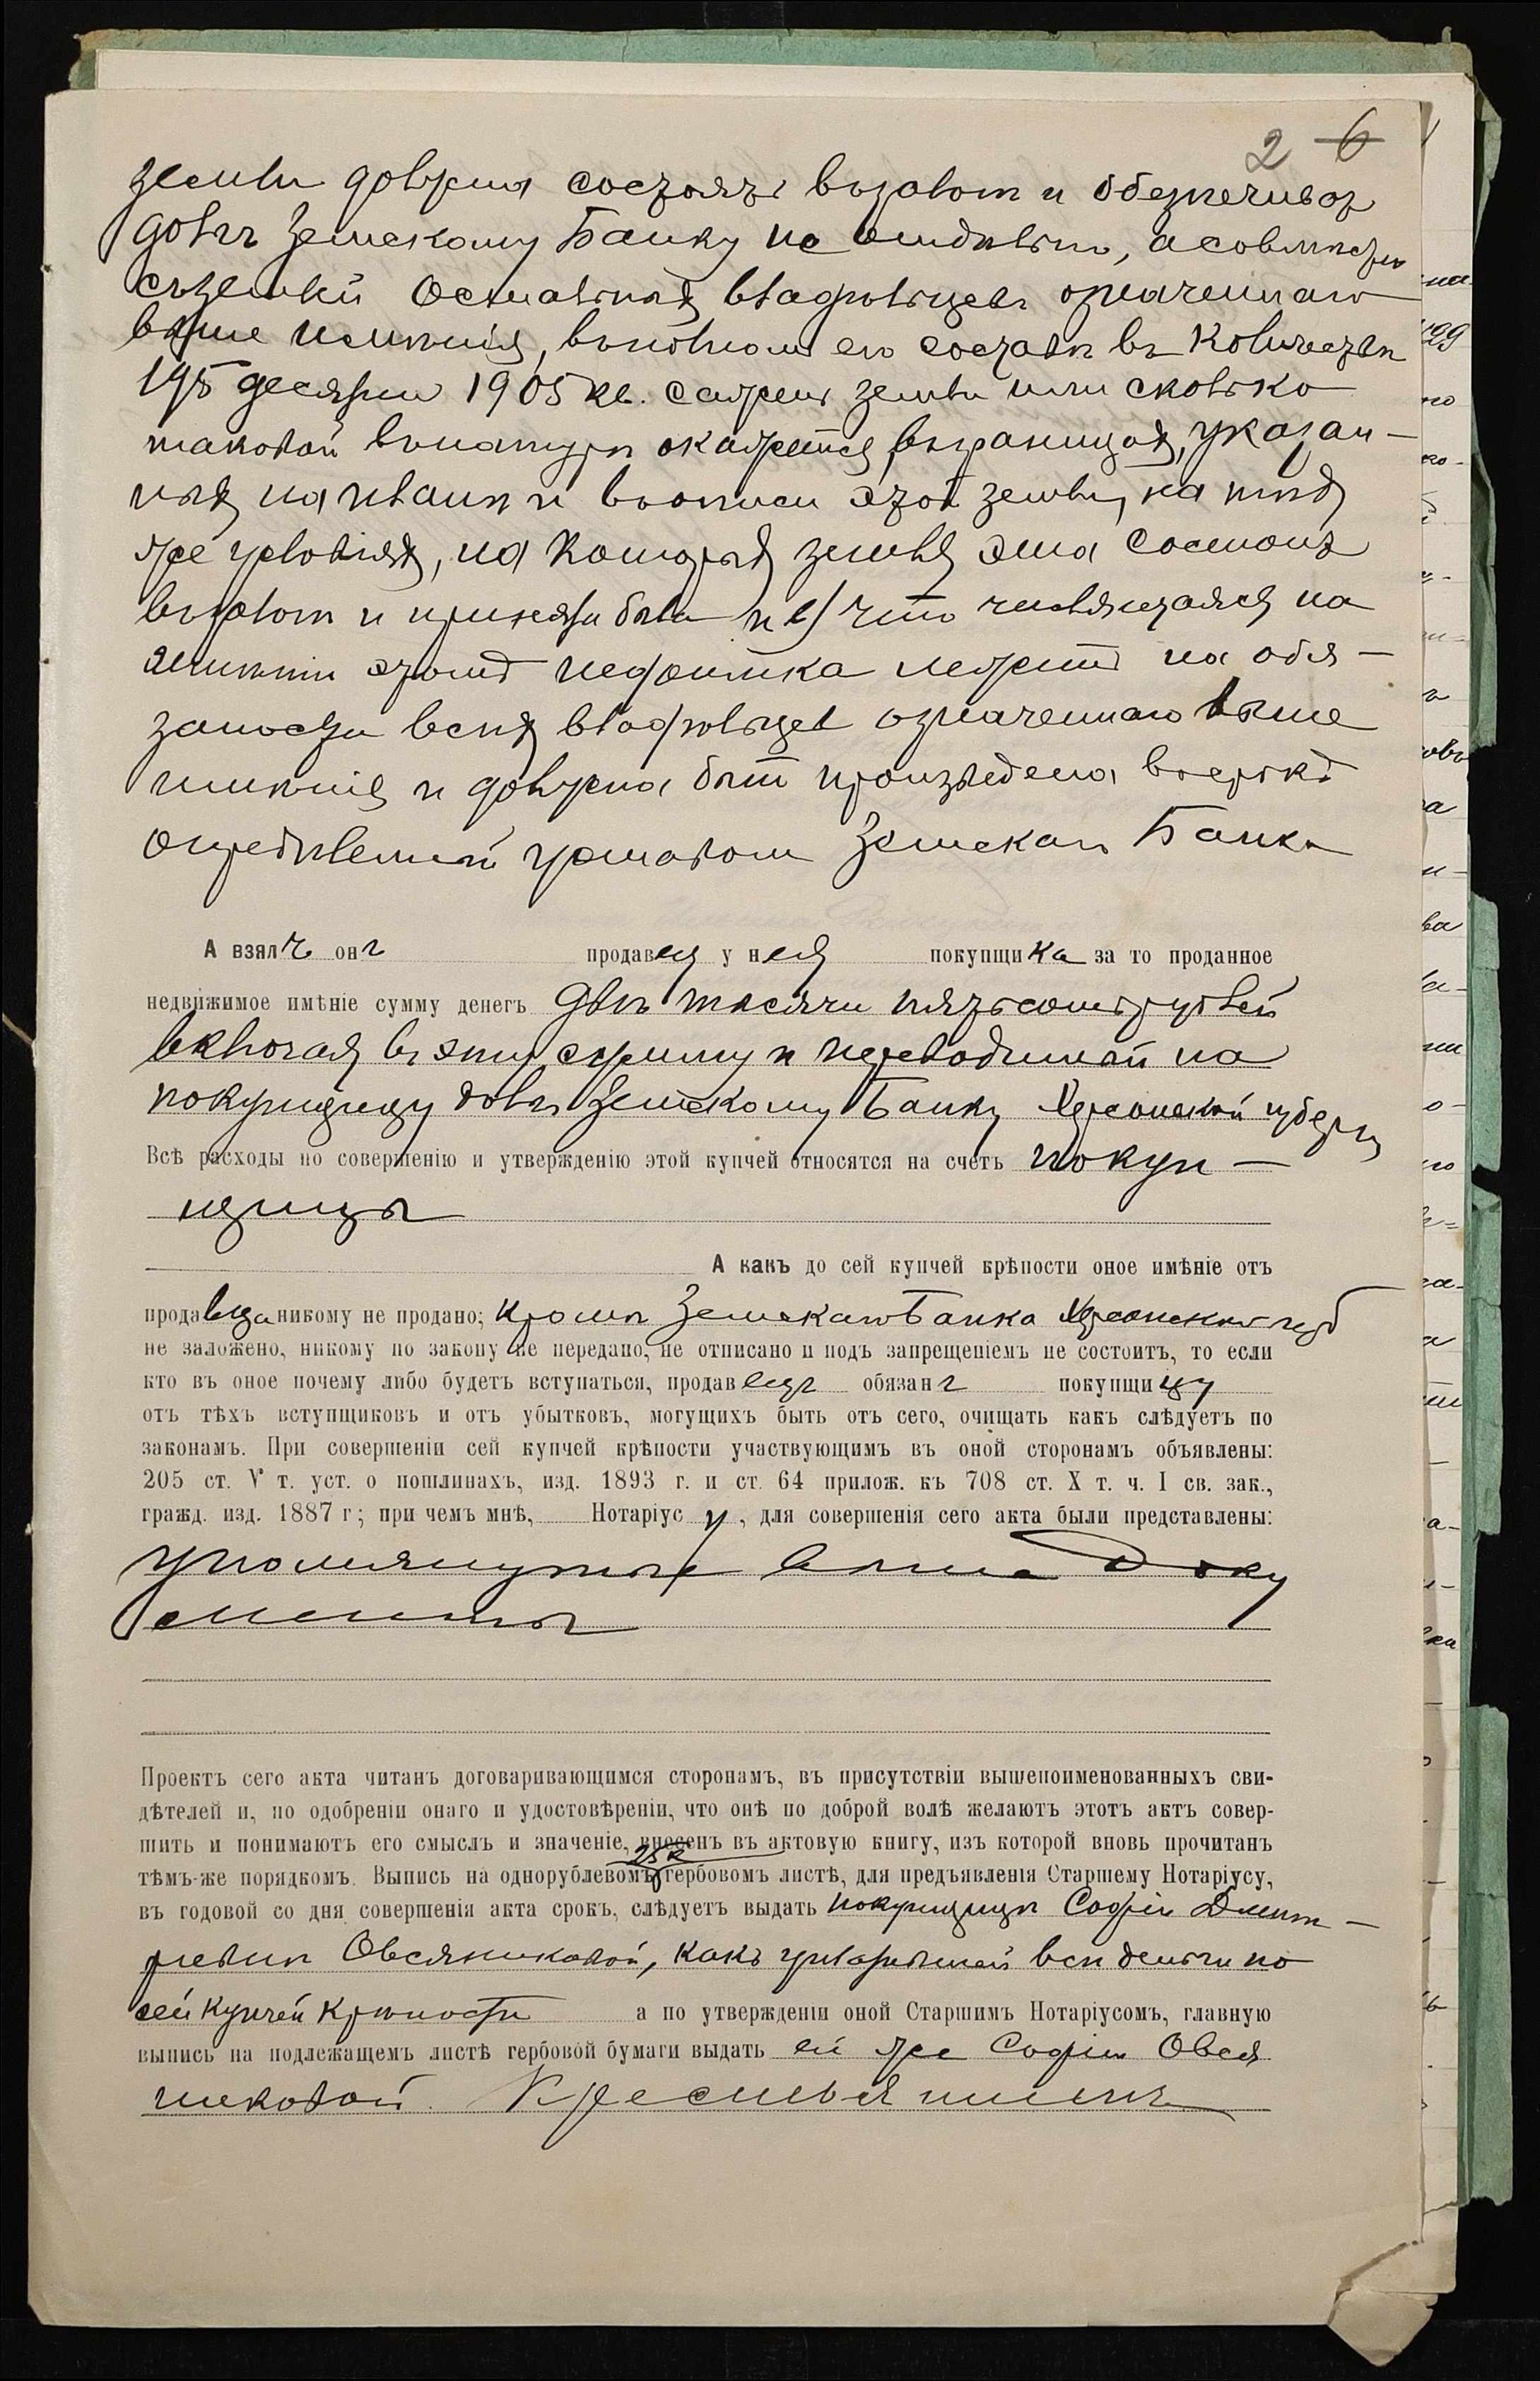 2 6
земли должна состоять въ залогѣ и обезпечивать
долгъ Земскому Банку не отдѣльно, а совмѣстно
съ землей остальныхъ владѣльцевъ означеннаго
выше имѣнія, въ полномъ его составѣ въ количествѣ
195 десятин 1905 кв. сажень земли или сколько
таковой въ натурѣ окажется, въ границахъ, указан-
ныхъ на планѣ и въ описи этой земли, на тѣхъ
же условіяхъ, на которыхъ земля эта состоитъ
въ залогѣ и принята была и в) что числящаяся на
имѣніи этомъ недоимка лежитъ на обя-
занности всѣхъ владѣльцев означеннаго выше
имѣнія и должна быть произведена въ срокъ
опредѣленный уставомъ Земскаго Банка
А взялъ онъ продавецъ у нея покупщика за то проданное
недвижимое имѣніе сумму денегъ двѣ тысячи пятьсотъ рублей
включая въ эту сумму и переводимый на
покупщицу долгъ Земскому Банку Херсонской губерніи
Всѣ расходы по совершенію и утвержденію этой купчей относятся на счетъ покуп-
щицы
А какъ до сей купчей крѣпости оное имѣніе отъ
продавца никому не продано; кромѣ Земскаго Банка Херсонской губ
не заложено, никому по закону не передано, не отписано и подъ запрещеніемъ не состоитъ, то если
кто въ оное почему либо будетъ вступаться, продавецъ обязанъ покупщицу
отъ тѣхъ вступщиковъ и отъ убытковъ, могущихъ быть отъ сего, очищать какъ слѣдуетъ по
законамъ. При совершеніи сей купчей крѣпости участвующимъ въ оной сторонамъ объявлены:
205 ст. V т. уст. о пошлинахъ, изд. 1893 г. и ст. 64 прилож. къ 708 ст. X т. ч. I св. зак.,
гражд. изд. 1887 г; при чемъ мнѣ, Нотаріусу, для совершенія сего акта были представлены:
упомянутые выше доку
менты
Проектъ сего акта читанъ договаривающимся сторонамъ, въ присутствіи вышепоименованныхъ сви-
дѣтелей и, по одобреніи онаго и удостовѣреніи, что онѣ по доброй волѣ желаютъ этотъ актъ совер-
шить и понимаютъ его смыслъ и значеніе, внесенъ въ актовую книгу, изъ которой вновь прочитанъ
25 к
тѣмъ-же порядкомъ. Выпись на однорублевомъ гербовомъ листѣ, для предъявленія Старшему Нотаріусу,
въ годовой со дня совершенія акта срокъ, слѣдуетъ выдать покупщицѣ Софіи Дмит-
ріевнѣ Овсяниковой, какъ уплатившей всѣ деньги по
сей купчей крѣпости а по утвержденіи оной Старшимъ Нотаріусомъ, главную
выпись на подлежащемъ листѣ гербовой бумаги выдать ей же Софіи Овся
никовой. Крестьянинъ